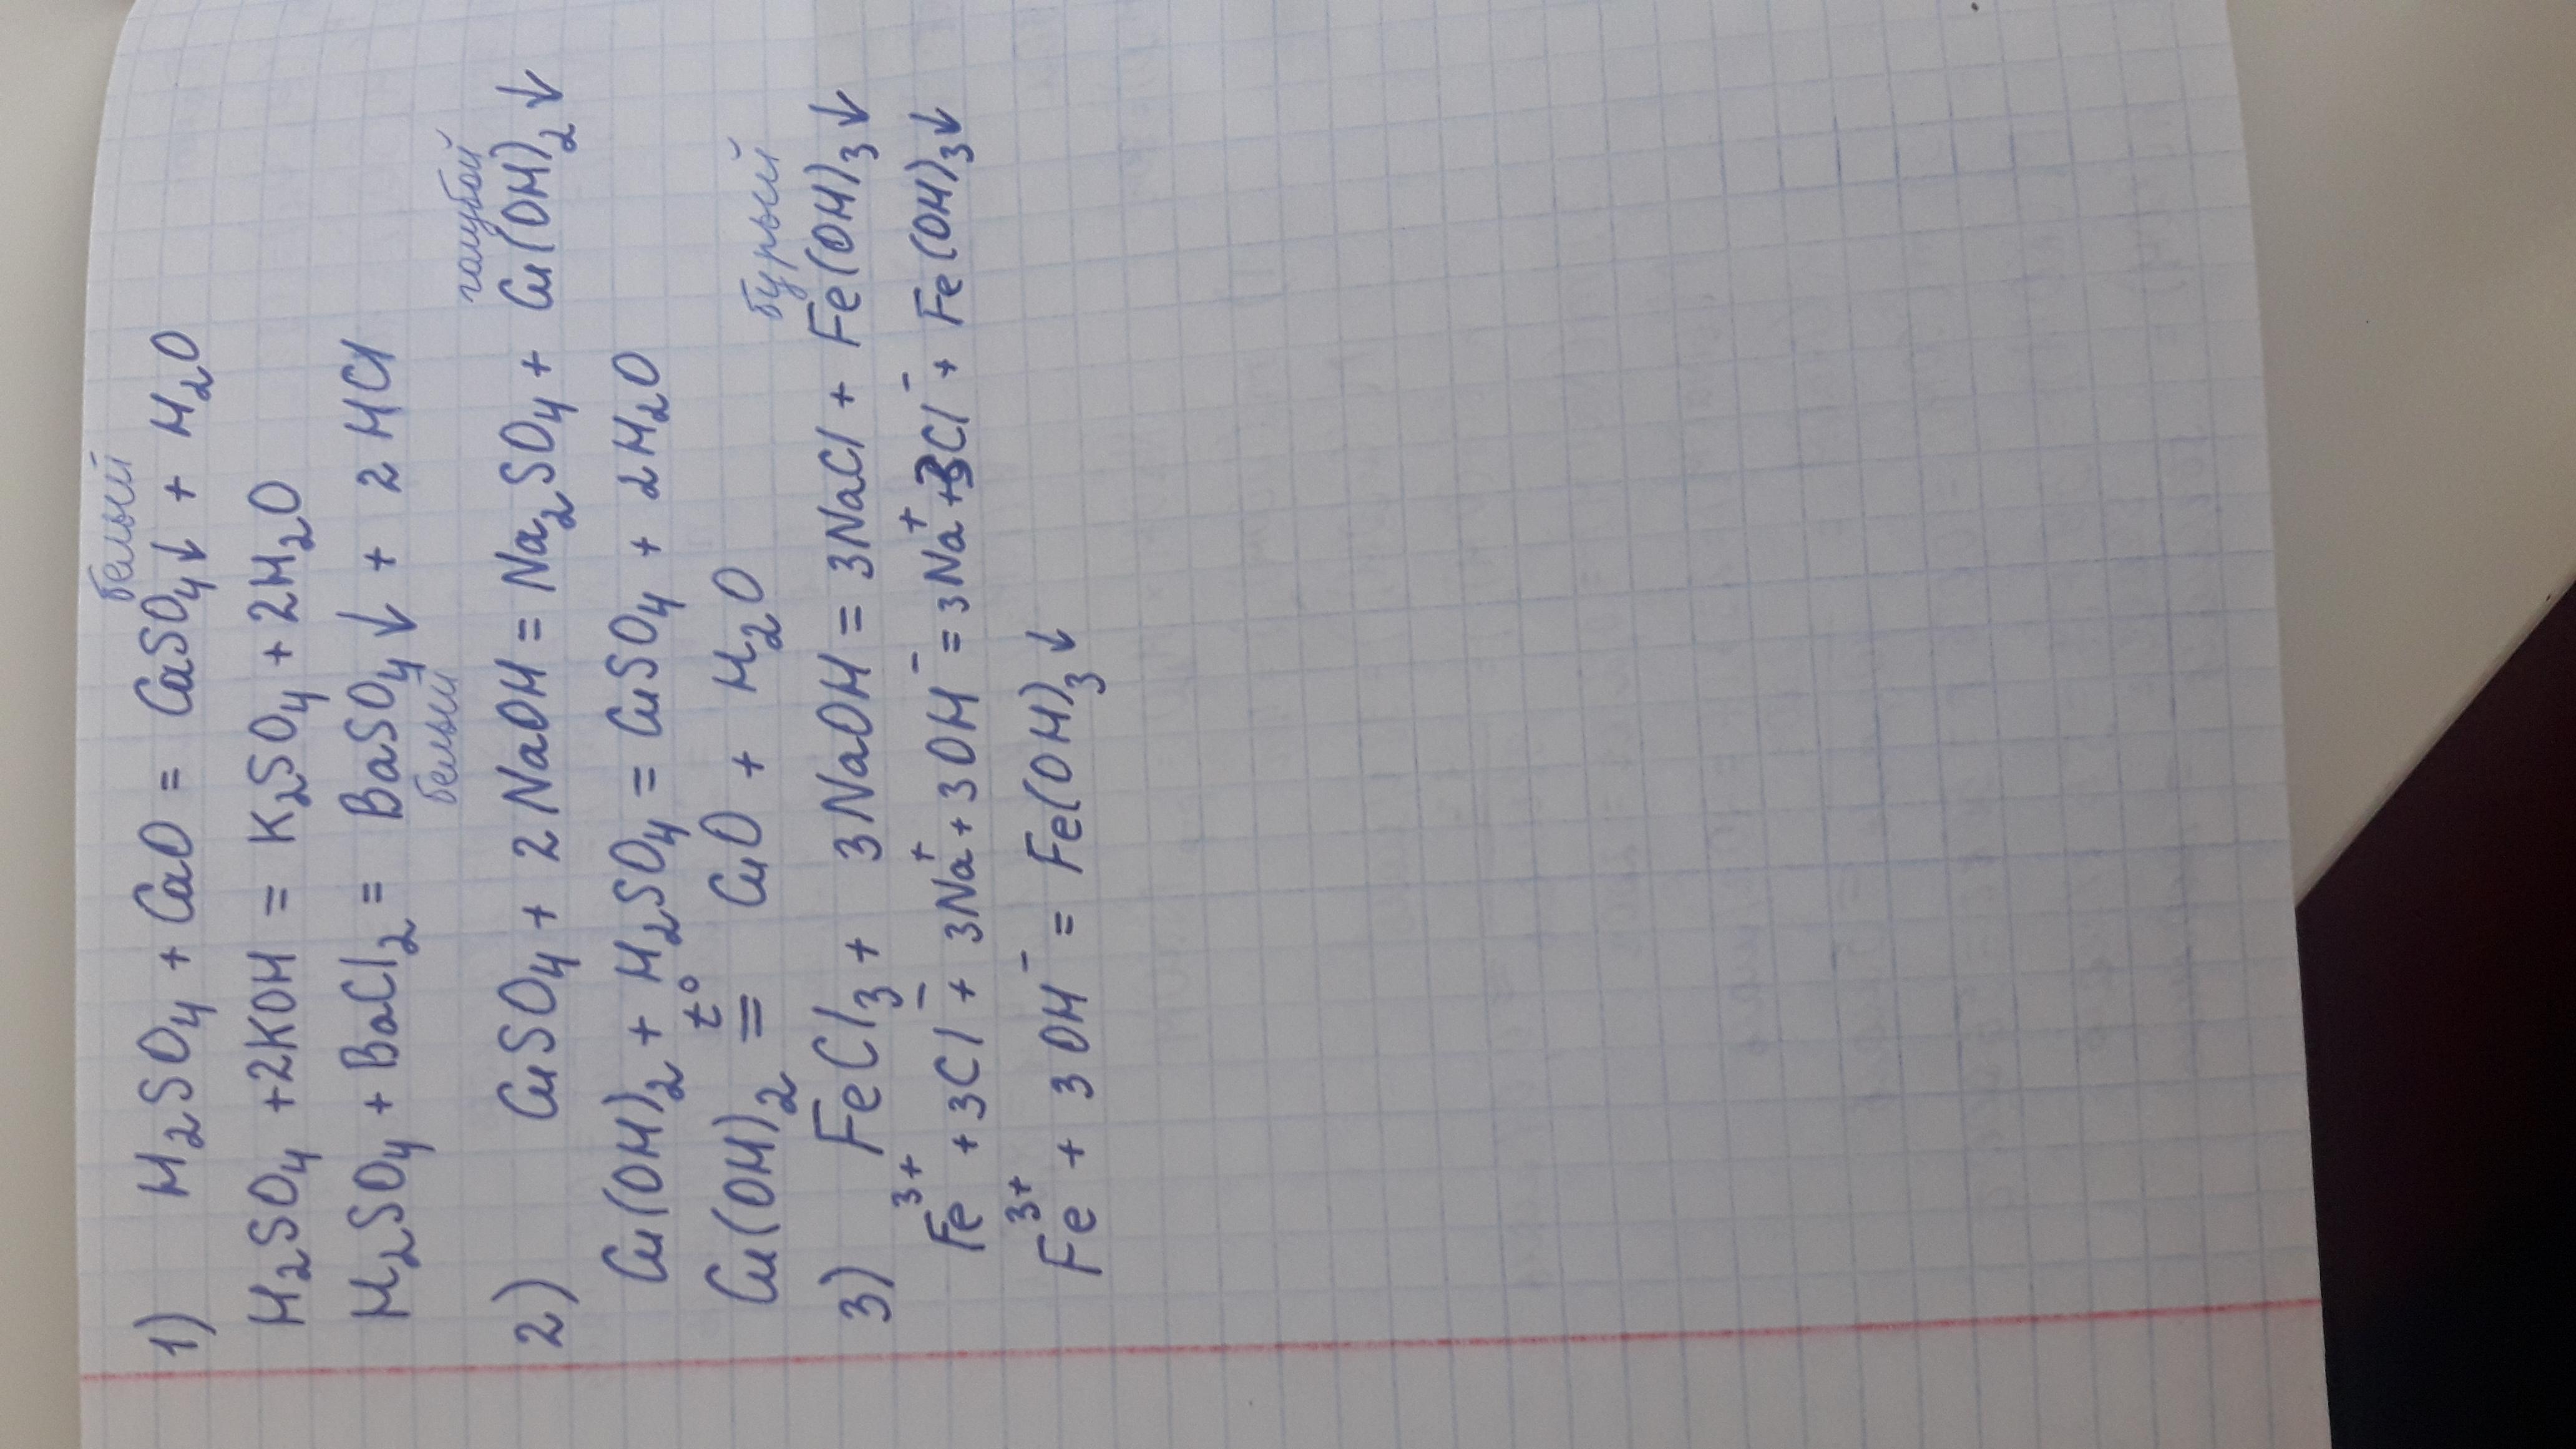 1) H₂SO₄ + CaO = CaSO₄↓ + H₂O
белый
H₂SO₄ + 2KOH = K₂SO₄ + 2H₂O
H₂SO₄ + BaCl₂ = BaSO₄↓ + 2HCl
белый
голубой
2) CuSO₄ + 2NaOH = Na₂SO₄ + Cu(OH)₂↓
Cu(OH)₂ + H₂SO₄ = CuSO₄ + 2H₂O
t°
Cu(OH)₂ = CuO + H₂O
бурый
3) FeCl₃ + 3NaOH = 3NaCl + Fe(OH)₃↓
Fe³⁺ + 3Cl⁻ + 3Na⁺ + 3OH⁻ = 3Na⁺ + 3Cl⁻ + Fe(OH)₃↓
Fe³⁺ + 3OH⁻ = Fe(OH)₃↓